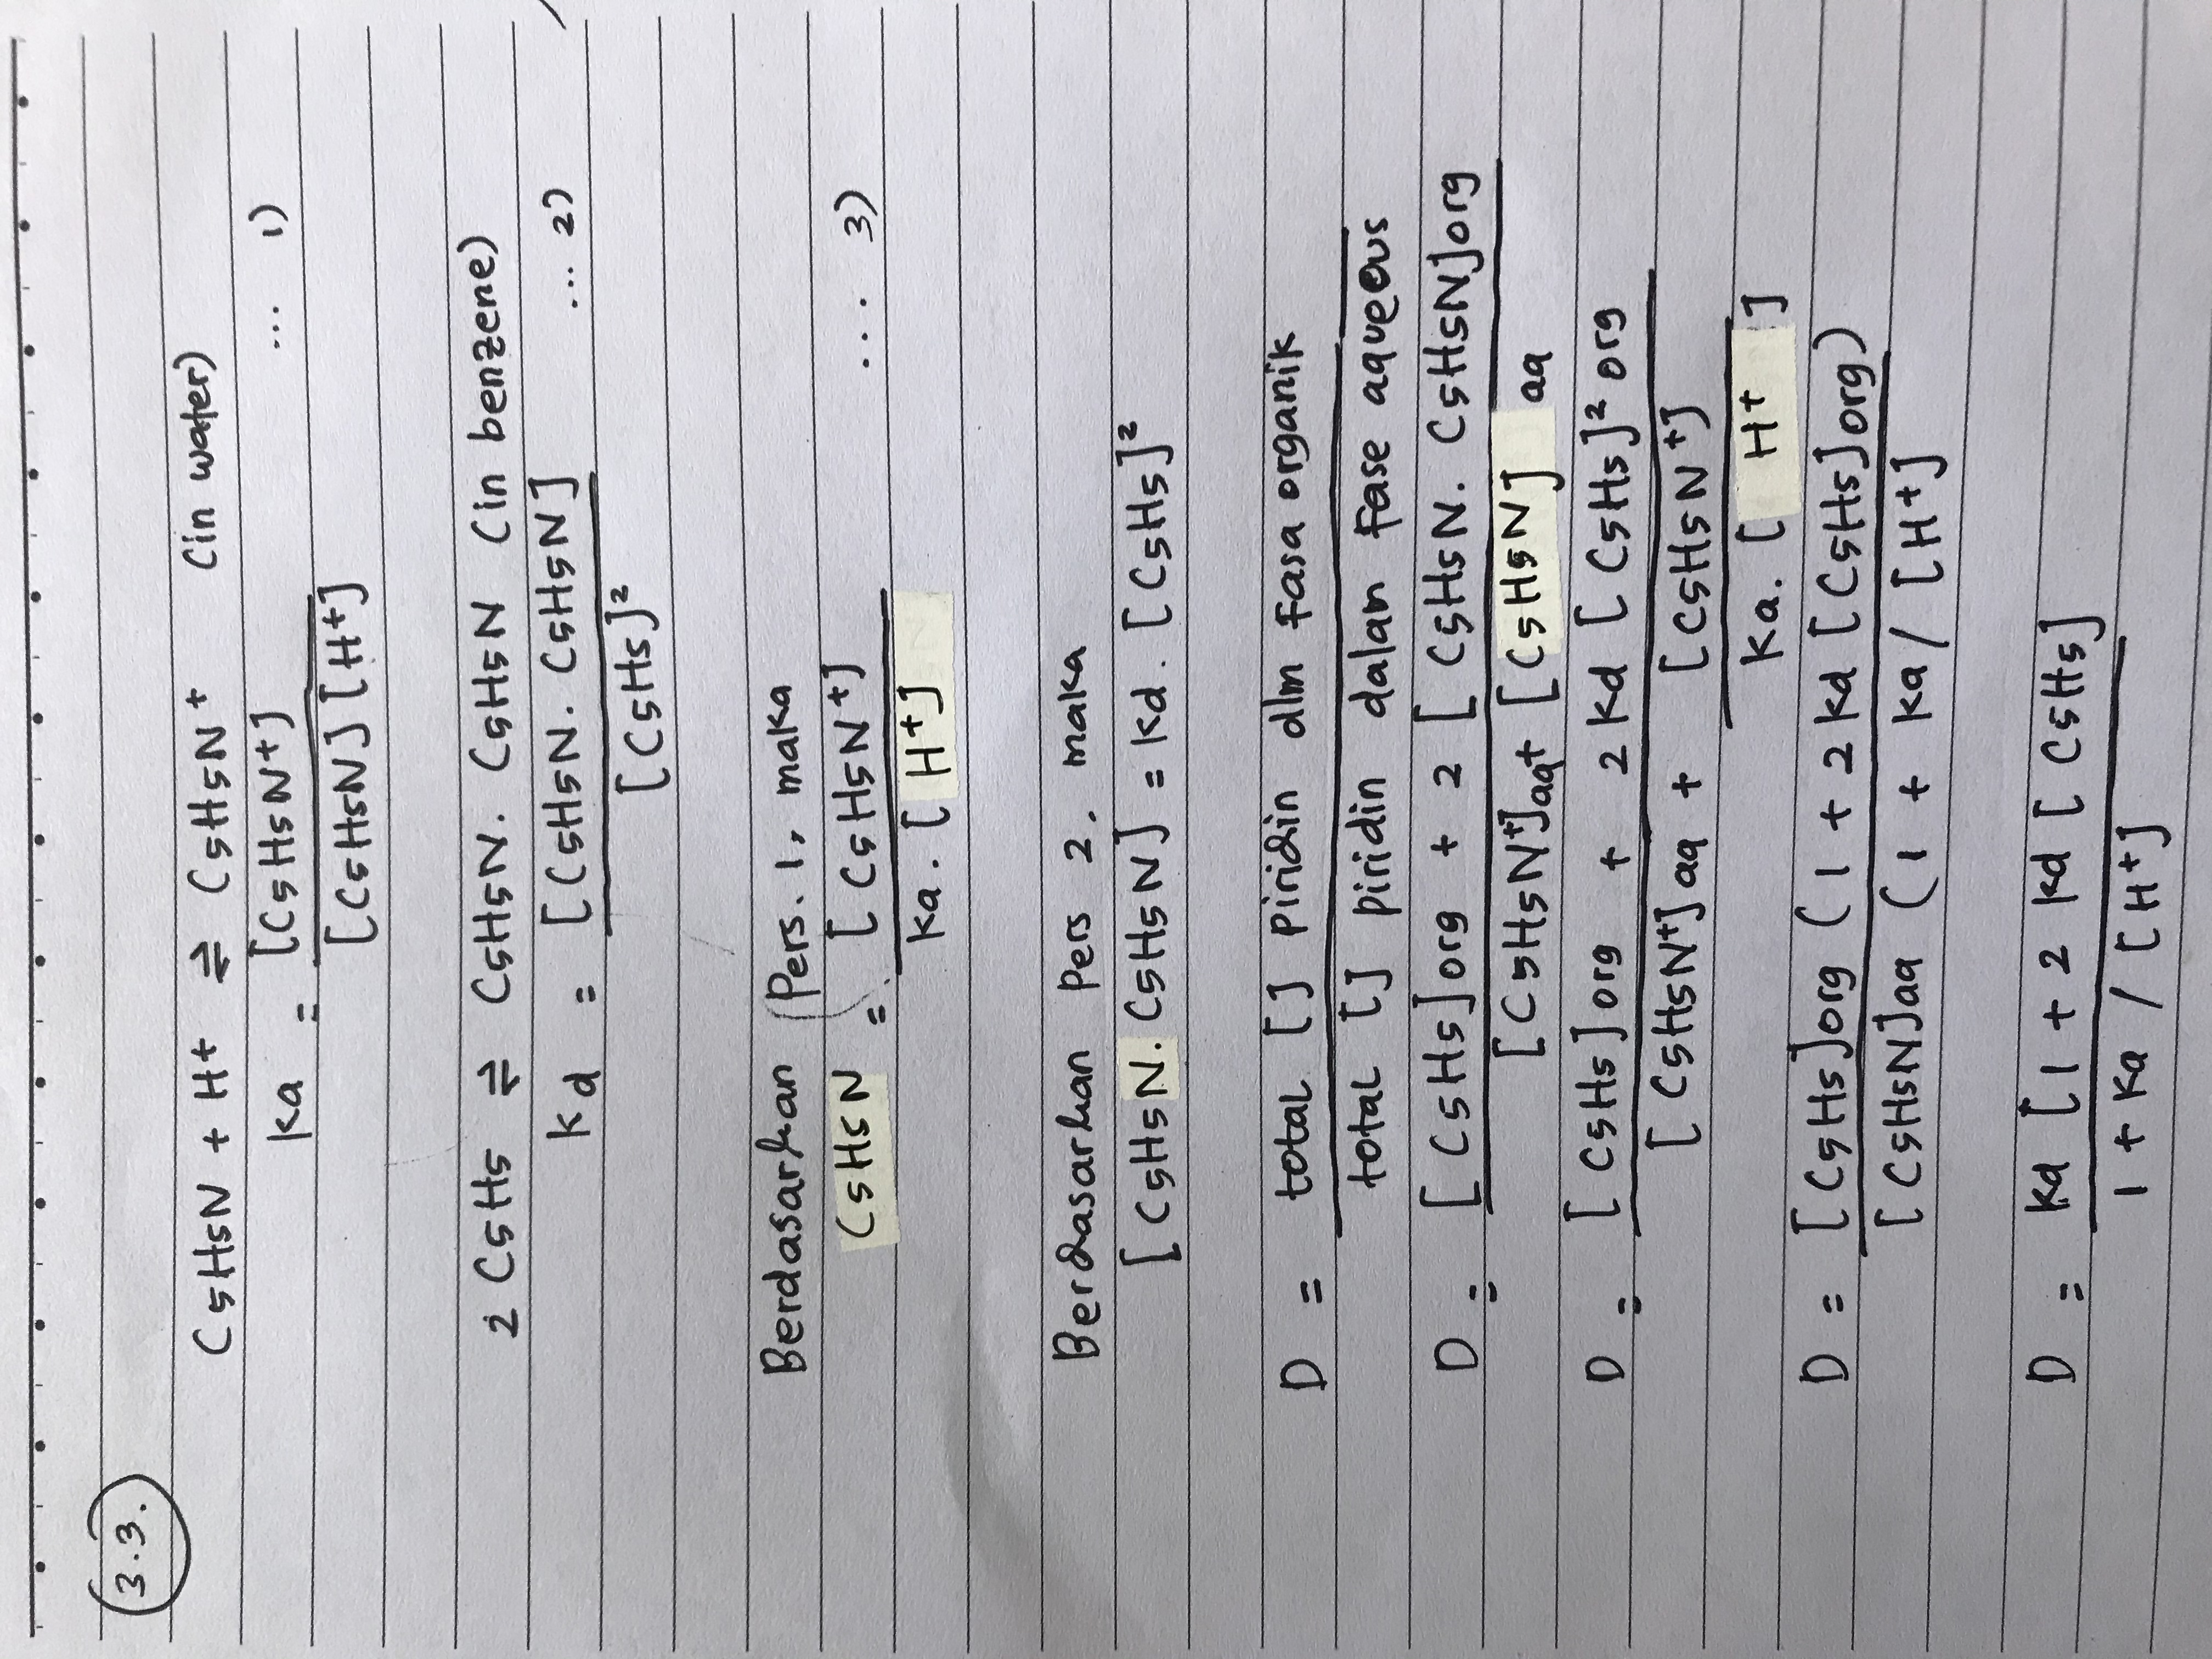 3.3.
C5H5N + H+ ⇌ C5H5N+ Cin water)
Ka = [C5H5N+] ... 1)
[C5H5N] [H+]
2 C5H5 ⇌ C5H5N. C5H5N Cin benzene)
Kd = [C5H5N. C5H5N] ... 2)
[C5H5]²
Berdasarkan (Pers. 1, maka
C5H5N = [C5H5N+] ... 3)
Ka. [H+]
Berdasarkan Pers 2, maka
[C5H5N. C5H5N] = Kd. [C5H5]²
D = total [] piridin dlm fasa organik
total [] piridin dalam fase aqueous
D = [C5H5]org + 2 [C5H5N. C5H5N]org
[C5H5N+]aq+ [C5H5N] aq
D = [C5H5]org + 2 Kd [C5H5]² org
[C5H5N+]aq + [C5H5N+]
Ka. [H+]
D = [C5H5]org (1 + 2 Kd [C5H5]org)
[C5H5N]aq (1 + Ka/ [H+]
D = Kd [1 + 2 Kd [C5H5]
1 + Ka / [H+]